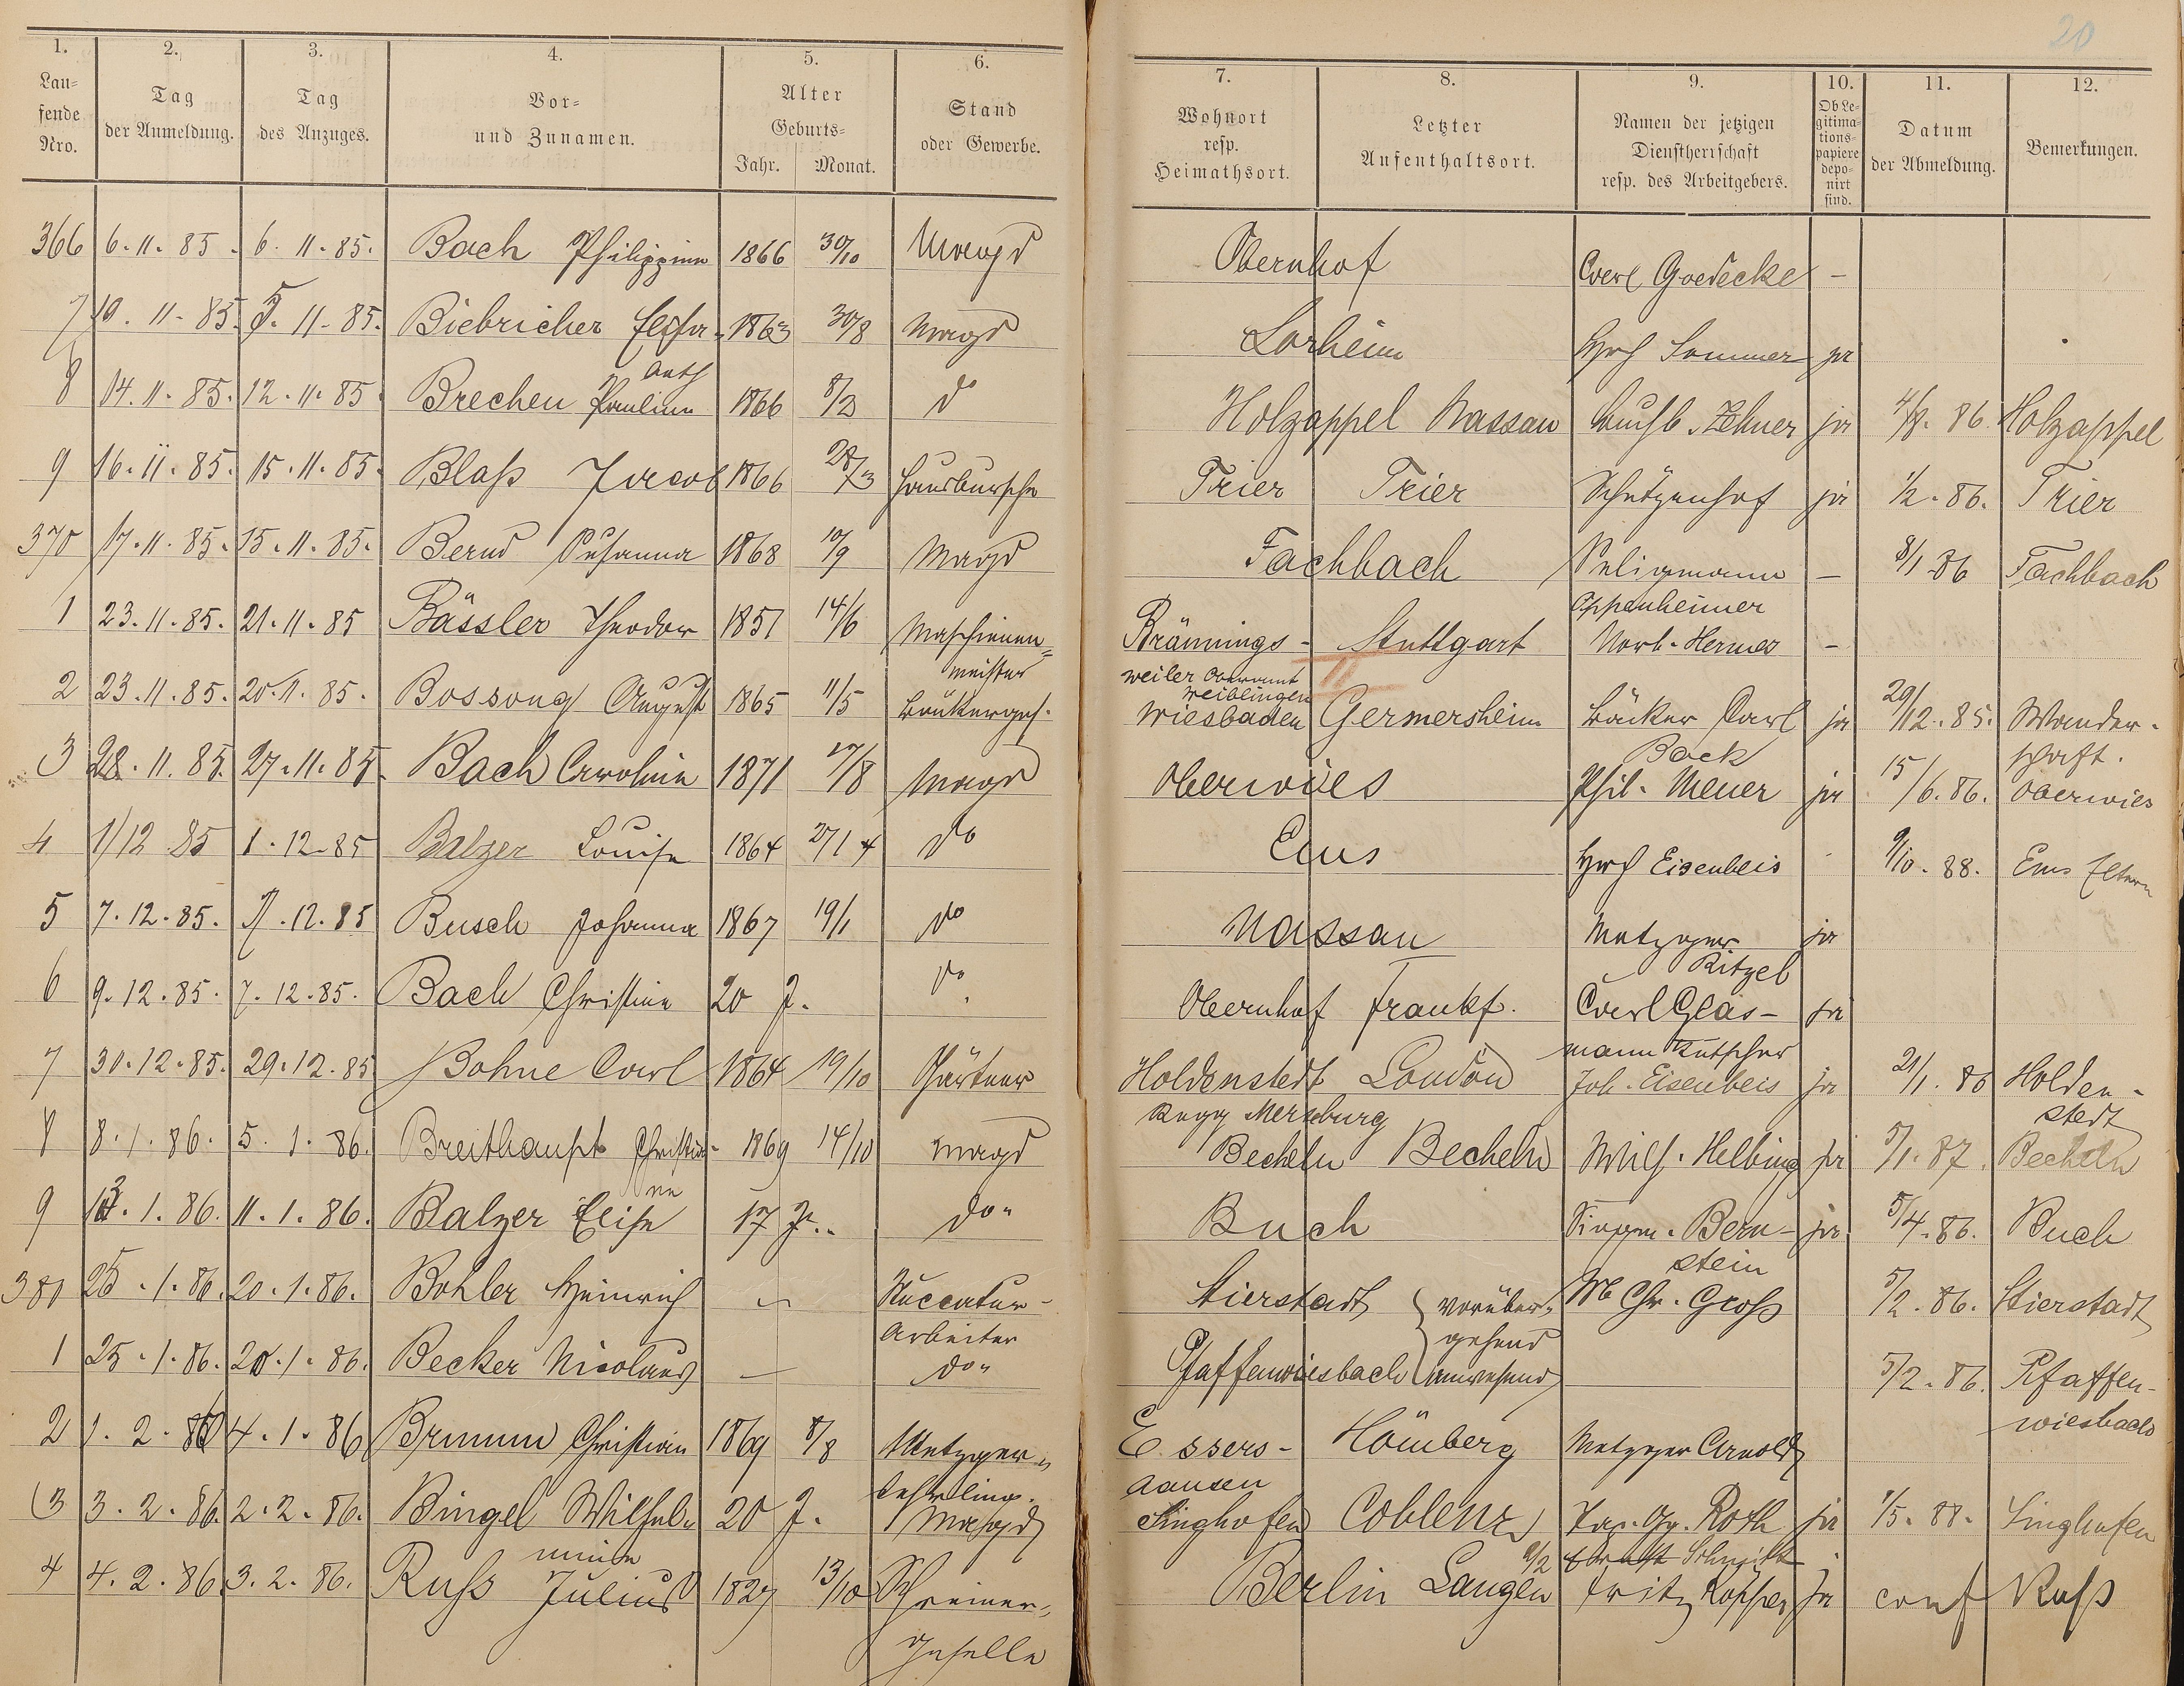 20
1. 2. 3. 4. 5. 6. 7. 8. 9. 10. 11. 12.
Lau-
fende
Nro.
Tag
der Anmeldung.
Tag
des Anzuges.
Vor-
und Zunamen.
Alter
Geburts-
Jahr. Monat.
Stand
oder Gewerbe.
Wohnort
resp.
Heimathsort.
Letzter
Aufenthaltsort.
Namen der jetzigen
Dienstherrschaft
resp. des Arbeitgebers.
Ob Le-
gitima-
tions-
papiere
depo-
nirt
sind.
Datum
der Abmeldung.
Bemerkungen.
366 6. 11. 85. 6. 11. 85. Bach Philippine 1866 30/10 Magd Obernhof Carl Goedecke –
7 10. 11. 85. 5. 11. 85. Biebricher Elisa 1863 30/8 Magd Lorheim Hrch Sommer ja
8 14. 11. 85. 12. 11. 85. Brechen Pauline 1866 8/2 do Holzappel Nassau Zehner ja 4/8. 86. Holzappel
9 16. 11. 85. 15. 11. 85. Blaß Jacob 1866 28/3 Hausbursche Trier Trier Schützenhof ja 1/2. 86. Trier
370 17. 11. 85. 15. 11. 85. Bernd Susanna 1868 10/9 Magd Fachbach Seligmann – 8/1 86 Fachbach
Oppenheimer
1 23. 11. 85. 21. 11. 85 Bässler Theodor 1851 14/6 Maschienen- Brännings- Stuttgart Norb. Hermes –
meister weiler Oberamt
weiblingen
2 23. 11. 85. 20. 11. 85. Bossong August 1865 11/5 Bäckerges. Wiesbaden Germersheim Bäcker Carl ja 29/12. 85. Wander-
Back schaft.
3 28. 11. 85. 27. 11. 85. Bach Caroline 1871 17/8 Magd Oberwies Phil. Meuer ja 15/6. 86. Oberwies
4 1/12 85 1. 12. 85 Balzer Louise 1864 27/4 do Ems Hrch Eisenbeis 9/10. 88. Ems Eltern
5 7. 12. 85. 7. 12. 85 Busch Johanna 1867 19/1 do Nassau Metzger ja
Ritzel
6 9. 12. 85. 7. 12. 85. Bach Christine 20 J. do Obernhof Frankf. Carl Glas- ja
mann Kutscher
7 30. 12. 85. 29. 12. 85 Bohne Carl 1864 19/10 Gärtner Holdenstedt London Joh. Eisenbeis ja 21/1. 86 Holden-
Regg Merseburg stedt
8 8. 1. 86. 5. 1. 86. Breithaupt Christia- 1869 14/10 Magd Becheln Becheln Wilh. Helbing ja 5/1. 87. Becheln
ne
9 13. 1. 86. 11. 1. 86. Balzer Elise 17 J. do Buch Bern- ja 5/4. 86. Buch
stein
380 25. 1. 86. 20. 1. 86. Bohler Heinrich – Stuccatur- Stierstadt vorüber- Chr. Groß 5/2. 86. Stierstadt
arbeiter gehend
1 25. 1. 86. 20. 1. 86. Becker Nicolaus – do Pfaffenwiesbach anwesend 5/2. 86. Pfaffen-
wiesbach
2 1. 2. 86 4. 1. 86 Brumm Christian 1869 8/8 Metzger- Essers- Hömberg Metzger Arnold
Lehrling. hausen
3 3. 2. 86. 2. 2. 86. Bingel Wilhel- 20 J. Magd Singhofen Coblenz Roth ja 1/5. 88. Singhofen
mine Ernst Schmidt
4 4. 2. 86 3. 2. 86. Ruß Julius 1827 13/10 Schreiner- Berlin Langen Fritz Kopper ja conf Ruß
Geselle